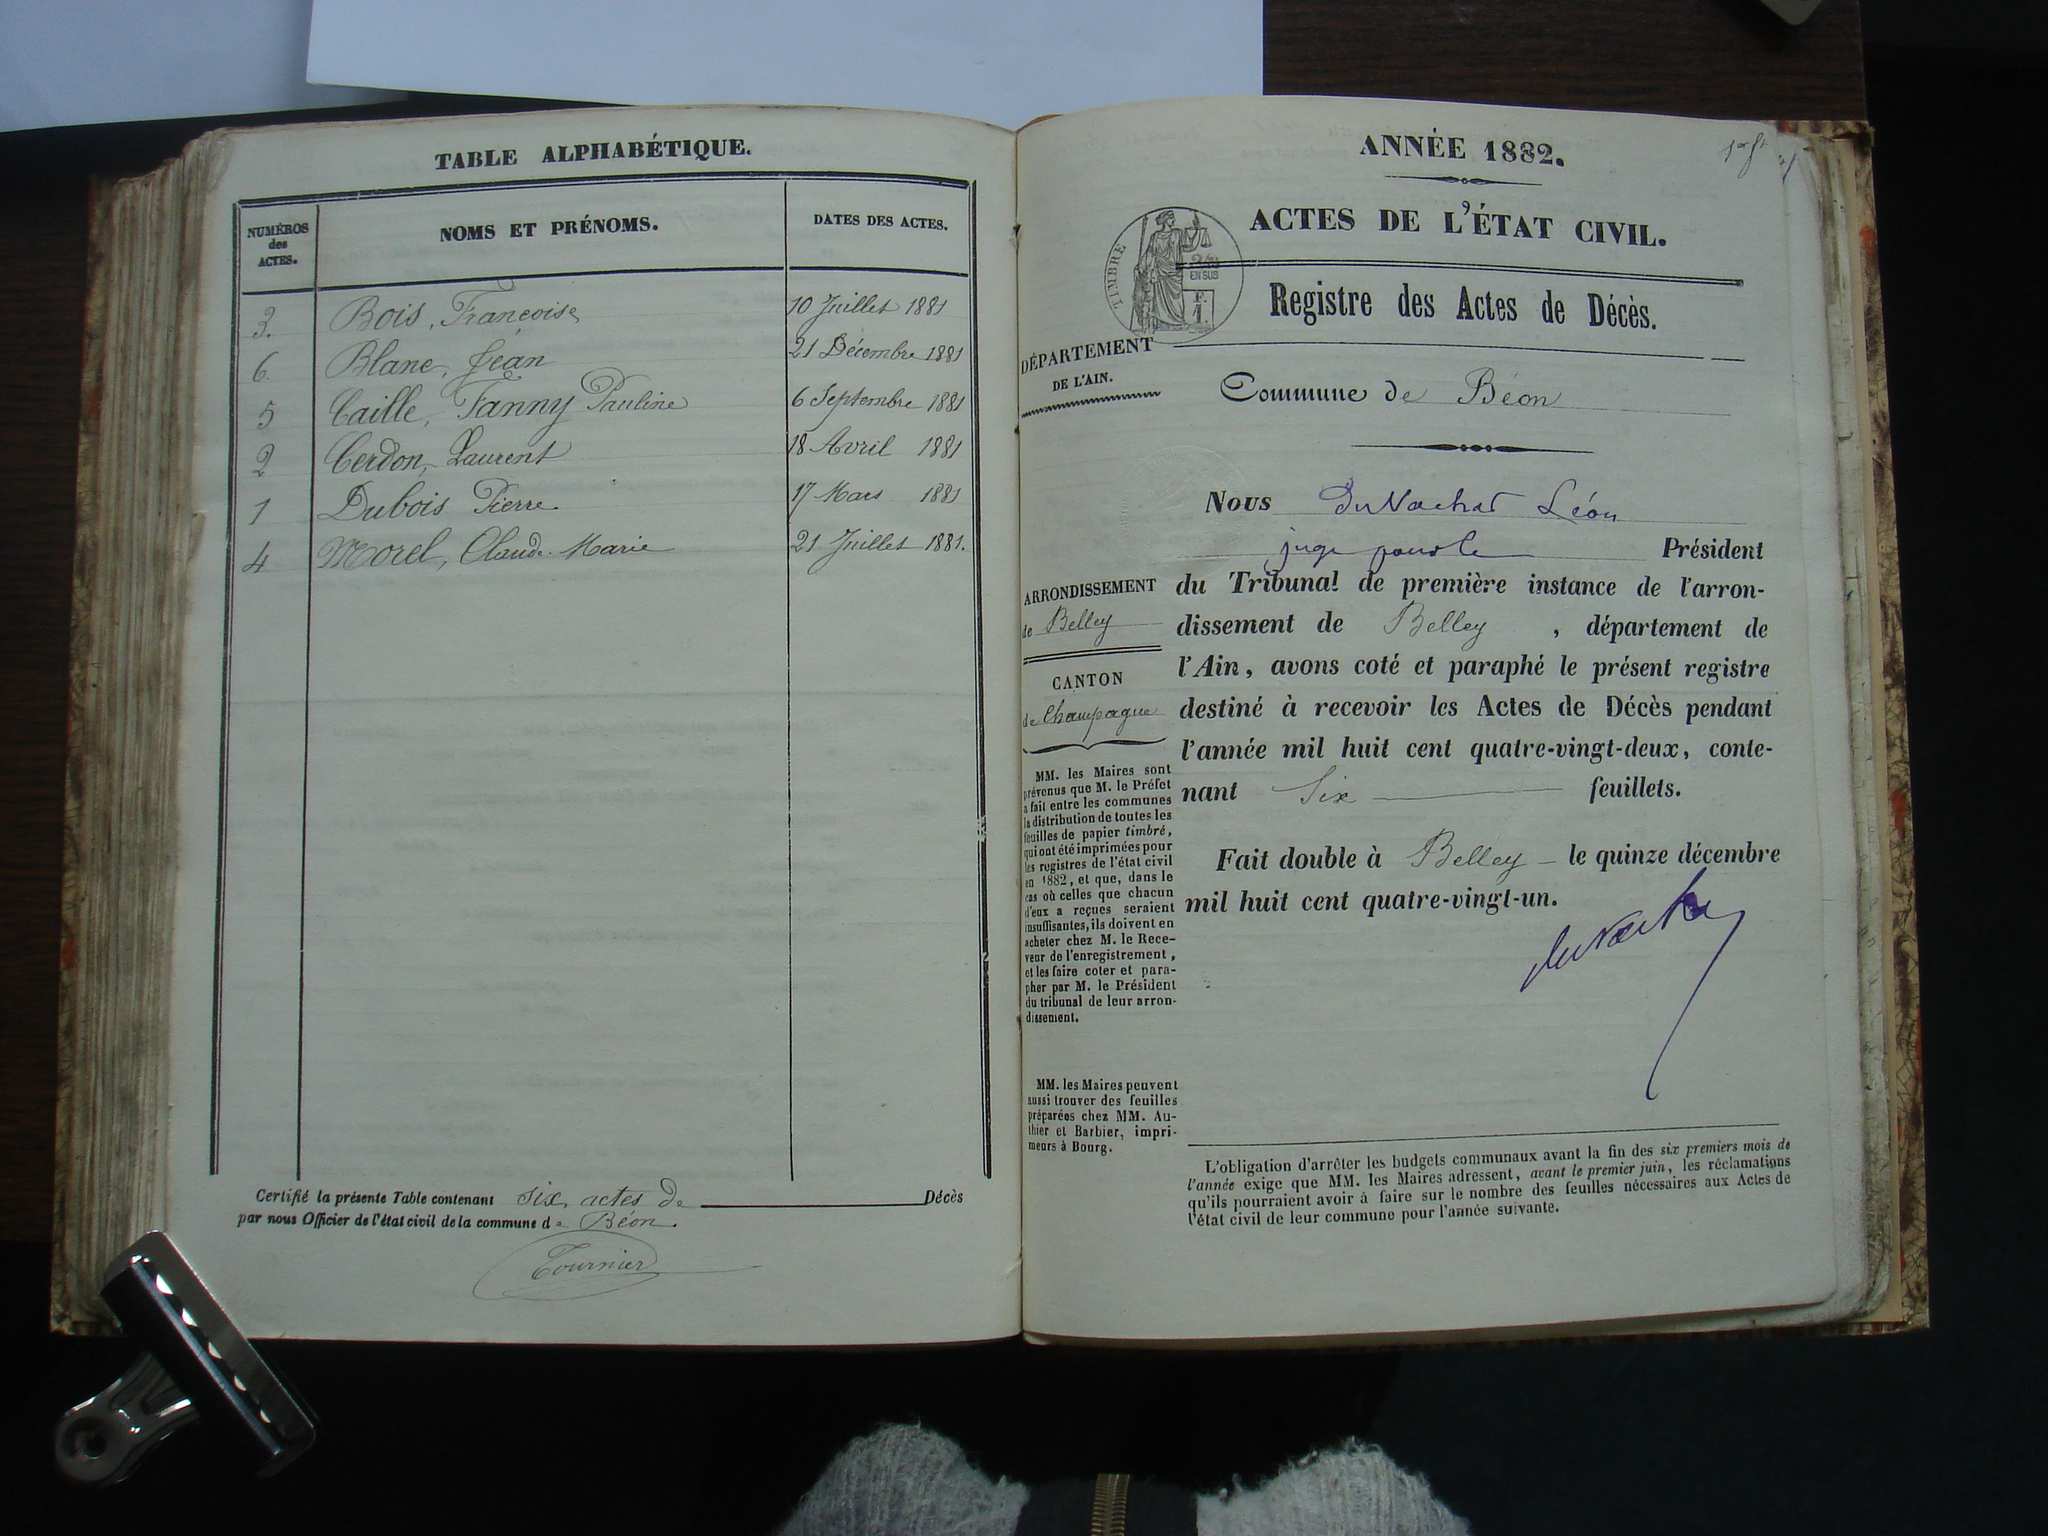 TABLE ALPHABÉTIQUE.
NUMÉROS des ACTES. NOMS ET PRÉNOMS. DATES DES ACTES.
3. Bois, Françoise 10 Juillet 1881
6. Blanc, Jean 21 Décembre 1881
5 Caille, Fanny Pauline 6 Septembre 1881
2 Cerdon, Laurent 18 Avril 1881
1 Dubois Pierre 17 Mars 1881
4 Morel, Claude-Marie 21 Juillet 1881.
Certifié la présente Table contenant six actes de Décès
par nous Officier de l'état civil de la commune de Béon.
Tournier
ANNÉE 1882.
ACTES DE L'ÉTAT CIVIL.
TIMBRE
EN SUS
Registre des Actes de Décès.
DÉPARTEMENT
DE L'AIN.
Commune de Béon
ARRONDISSEMENT
de Belley
CANTON
de Champagne
MM. les Maires sont
prévenus que M. le Préfet
a fait entre les communes
la distribution de toutes les
feuilles de papier timbré,
qui ont été imprimées pour
les registres de l'état civil
en 1882, et que, dans le
cas où celles que chacun
d'eux a reçues seraient
insuffisantes, ils doivent en
acheter chez M. le Rece-
veur de l'enregistrement,
et les faire coter et para-
pher par M. le Président
du tribunal de leur arron-
dissement.
MM. les Maires peuvent
aussi trouver des feuilles
préparées chez MM. Au-
thier et Barbier, impri-
meurs à Bourg.
Nous Léon
juge pour le Président
du Tribunal de première instance de l'arron-
dissement de Belley, département de
l'Ain, avons coté et paraphé le présent registre
destiné à recevoir les Actes de Décès pendant
l'année mil huit cent quatre-vingt-deux, conte-
nant Six feuillets.
Fait double à Belley le quinze décembre
mil huit cent quatre-vingt-un.
L'obligation d'arrêter les budgets communaux avant la fin des six premiers mois de
l'année exige que MM. les Maires adressent, avant le premier juin, les réclamations
qu'ils pourraient avoir à faire sur le nombre des feuilles nécessaires aux Actes de
l'état civil de leur commune pour l'année suivante.